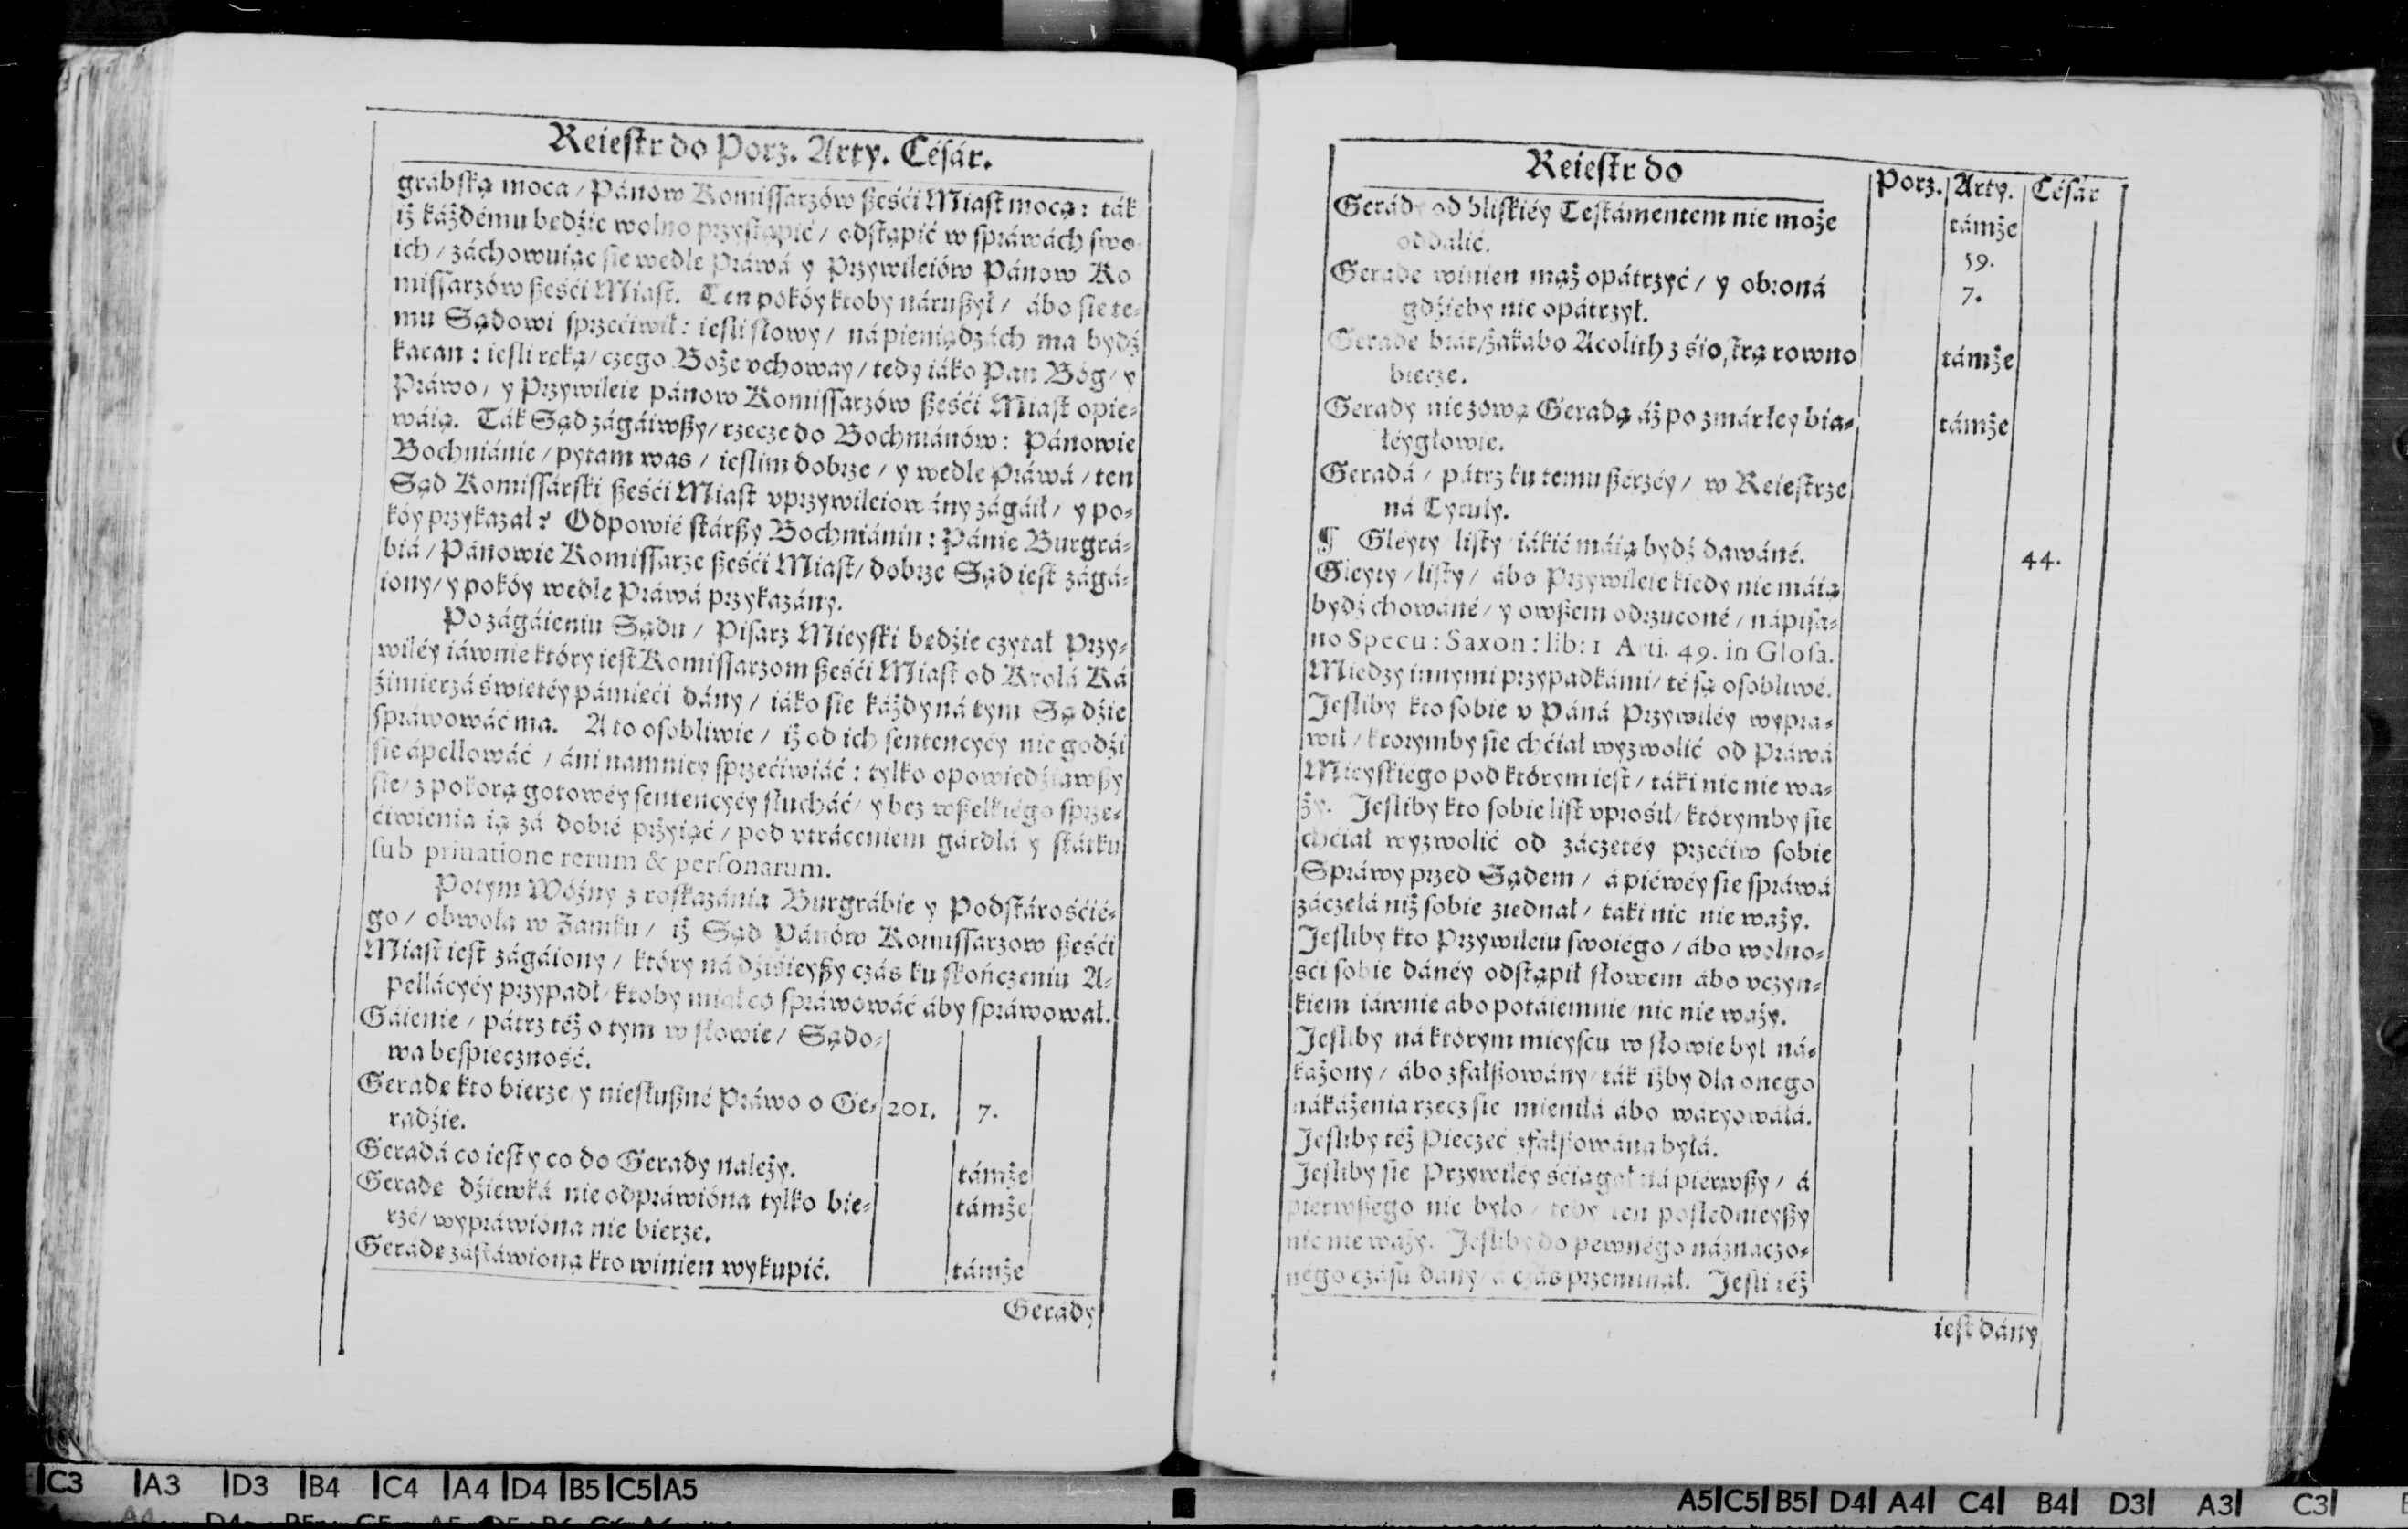 Reiestr do Porz. Arty. Césár.
grábską moca / Pánów Komissarzów sześći Miast mocą: ták
iż káżdému bedźie wolno przystąpić / odstąpić w spráwách swo
ich / záchowuiąc sie wedle Práwá y Przywileiów Pánow Ko
missarzów sześći Miast. Ten pokóy ktoby náruszył / ábo sie te-
mu Sądowi sprzećiwił: iesli słowy / ná pieniądzách ma bydź
karan: iesli ręką / czego Boże vchoway / tedy iáko Pan Bóg / y
Práwo / y Przywileie pánow Komissarzów sześći Miast opie-
wáią. Ták Sąd zágáiwszy / rzecze do Bochniánów: Pánowie
Bochniánie / pytam was / ieslim dobrze / y wedle Práwá / ten
Sąd Komissárski sześći Miast vprzywileiowány zágáił / y po-
kóy przykazał? Odpowié stárszy Bochniánin: Pánie Burgrá-
biá / Pánowie Komissarze sześći Miast / dobrze Sąd iest zágá-
iony / y pokóy wedle Práwá przykazány.
Po zágáieniu Sądu / Pisarz Mieyski bedźie czytał Przy-
wiléy iáwnie który iest Komissarzom sześći Miast od Krolá Ká
źimierzá świetéy pámieći dány / iáko sie káżdy ná tym Sądźie
spráwowáć ma. A to osobliwie / iż od ich sentencyéy nie godźi
sie ápellowáć / áni namniey sprzećiwiáć: tylko opowiedźiawszy
sie / z pokorą gotowéy sentencyéy słucháć / y bez wszelkiégo sprze-
ćiwienia ią zá dobré przyiąć / pod vtráceniem gárdlá y státku
sub priuatione rerum & personarum.
Potym Wóźny z roskazánia Burgrábie y Podstárośćié-
go / obwola w Zamku / iż Sąd Pánów Komissarzow sześći
Miast iest zágáiony / który ná dźisieyszy czás ku skończeniu A-
pellácyéy przypadł / ktoby miał co spráwowáć áby spráwował.
Gáienie / pátrz téż o tym w słowie / Sądo-
wa bespieczność.
Gerade kto bierze / y niesłuszné Práwo o Ge- 201. 7.
radźie.
Geradá co iest y co do Gerady należy. támże
Gerade dźiewká nie odpráwióna tylko bie- támże
rzé / wypráwióna nie bierze.
Gerade zástáwioną kto winien wykupić. támże
Gerady
Reiestr do Porz. Arty. Césár
Gerády od bliskiéy Testámentem nie może támże
oddalić. 59.
Gerade winien mąż opátrzyć / y obroná 7.
gdźieby nie opátrzył.
Gerade brát / żak abo Acolith z siostrą rowno támże
bierze.
Gerady nie zową Geradą áż po zmárłey bia- támże
łéygłowie.
Geradá / pátrz ku temu szerzéy / w Reiestrze
ná Tytuły.
¶ Gléyty / listy / iákié máią bydź dawáné. 44.
Gleyty / listy / ábo Przywileie kiedy nie máią
bydź chowáné / y owszem odrzuconé / nápisa-
no Specu: Saxon: lib: 1 Arti. 49. in Glosa.
Miedzy innymi przypadkámi / té są osobliwé.
Jesliby kto sobie v Páná Przywiléy wypra-
wił / ktorymby sie chćiał wyzwolić od Práwá
Mieyskiégo pod którym iest / táki nic nie wa-
ży. Jesliby kto sobie list vprośił / którymby sie
chćiał wyzwolić od záczetéy przećiw sobie
Spráwy przed Sądem / á piérwéy sie spráwá
záczełá niż sobie ziednał / táki nic nie waży.
Jesliby kto Przywileiu swoiégo / ábo wolno-
śći sobie dánéy odstąpił słowem ábo vczyn-
kiem iáwnie ábo potáiemnie / nic nie waży.
Jesliby ná którym mieyscu w słowie był ná-
káżony / ábo zfałszowány / ták iżby dla onego
nákáżenia rzecz sie mieniłá ábo wáryowáłá.
Jesliby téż Pieczeć zfałszowána byłá.
Jesliby sie Przywiléy śćiągał ná piérwszy / á
pierwszego nie było / tedy ten poslednieyszy
nic nie waży. Jesliby do pewnégo náznaczo-
négo czásu dány / á czás przeminał. Jesli téż
iest dány
C3 A3 D3 B4 C4 A4 D4 B5 C5 A5
A5 C5 B5 D4 A4 C4 B4 D3 A3 C3